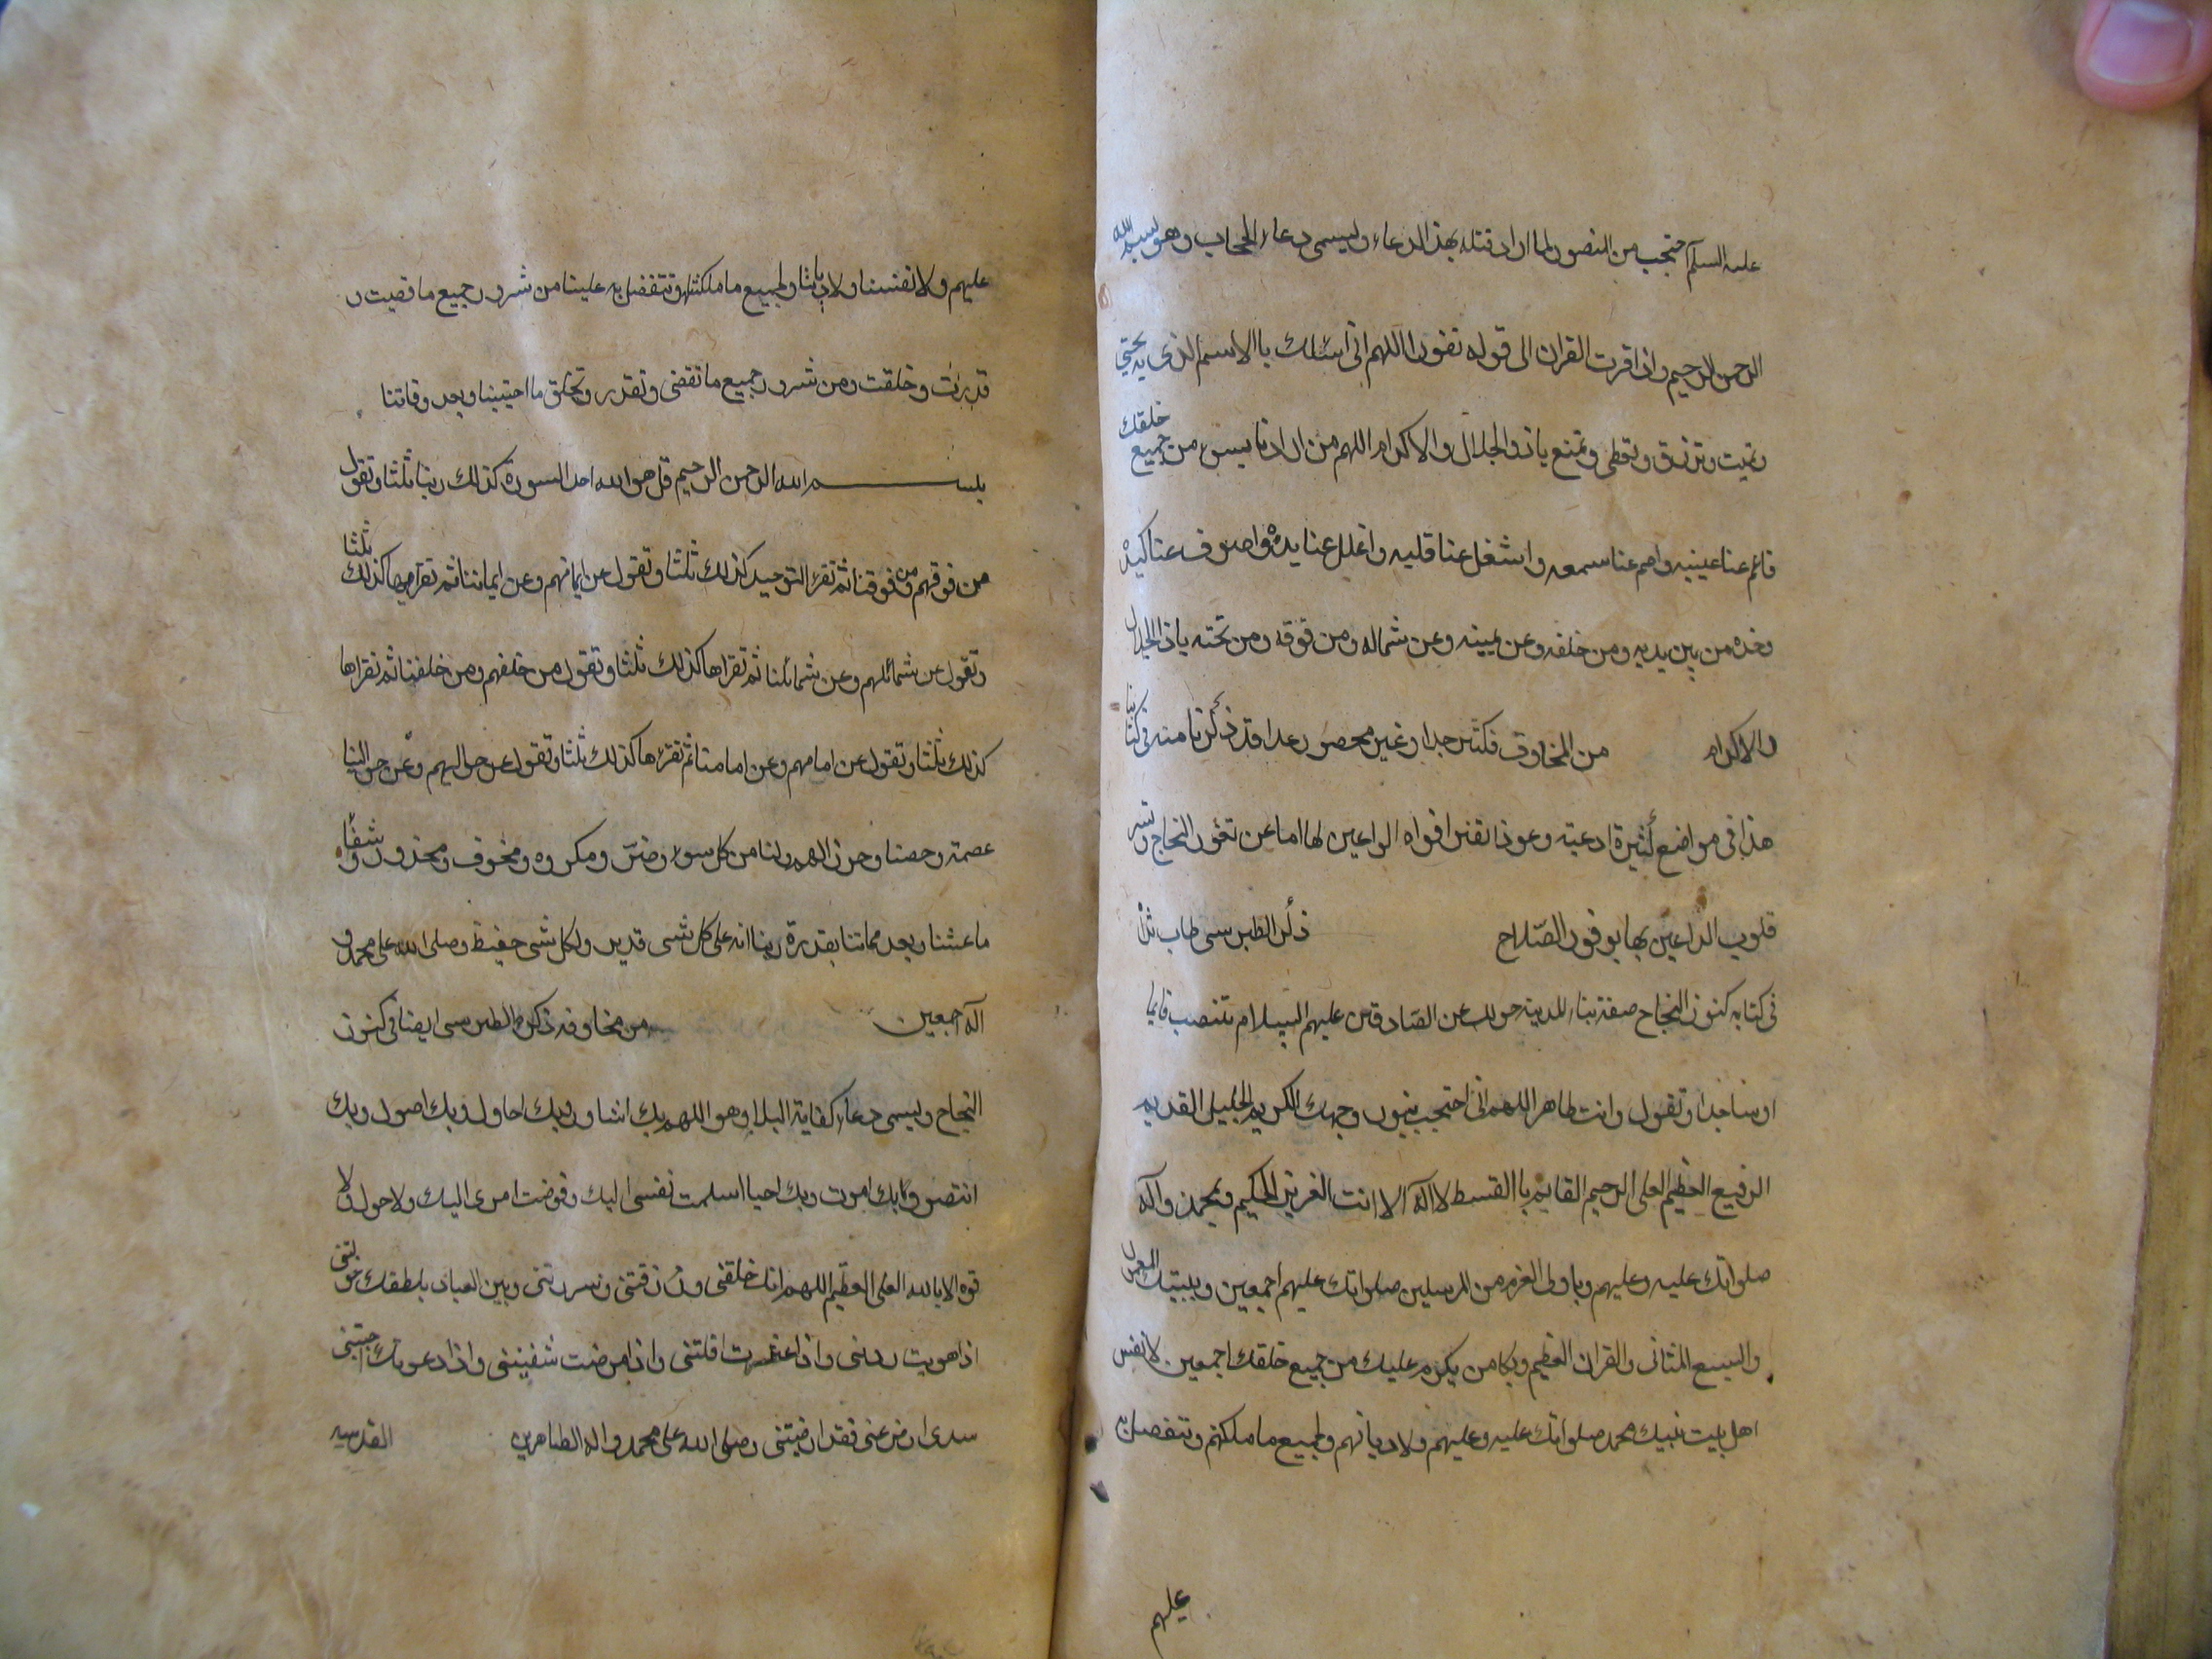 عليه السلم احتجب من المنصور لما اراد قتله بهذا الدعاء وليسمى دعاء الحجاب وهو بسم الله
الرحمن الرحيم واذا قرت القران الى قوله نفورا اللهم انى اسئلك باالاسم الذى به تحيى
وتميت وترزق وتعطى وتمنع ياذو الجلال والاكرام اللهم من ارادنا بسوء من جميع خلقك
فاعم عنا عينيه واصم عنا سمعه واشغل عنا قلبه واغلل عنا يده واصرف عنا كيده
وخذه من بين يديه ومن خلفه وعن يمينه وعن شماله ومن فوقه ومن تحته ياذا الجلال
والاكرام من المخاوف فكثير جدا وغير محصور عدا قد ذكرنا منه فى كتابنا
هذا فى مواضع كثيرة ادعية وعوذا يفتر افواه الواعين لها اما عن ثغور النجاح وتسر
قلوب الداعين بها بوفور الصلاح ذكر الطبرسى طاب ثراه
فى كتابه كنوز النجاح صفة بناء المدينة حولك عن الصادقين عليهم السلام تنتصب قايما
او ساجدا وتقول وانت طاهر اللهم انى احتجب بنور وجهك الكريم الجليل القديم
الرفيع العظيم العلى الرحيم القايم باالقسط لا اله الا انت العزيز الحكيم وبمحمد وآله
صلواتك عليه وعليهم وباولى العزم من المرسلين صلواتك عليهم اجمعين وببيتك المعمور
والسبع المثانى والقران العظيم وبكل من يكرم عليك من جميع خلقك اجمعين لانفس
اهل بيت نبيك محمد صلواتك عليه وعليهم ولاديانهم ولجميع ما ملكتهم وتتفضل به
عليهم
عليهم ولانفسنا ولاديانا ولجميع ما ملكتنا وتتفضل به علينا من شرور جميع ما قضيت و
قدرت وخلقت ومن شرور جميع ما تقضى وتقدر وتخلق ما احييتنا وبعد وفاتنا
بسم الله الرحمن الرحيم قل هو الله احد السورة كذلك ربنا ثلثا وتقول
من فوقهم ومن فوقنا ثم تقرء التوحيد كذلك ثلثا وتقول عن ايمانهم وعن ايماننا ثم تقراها كذلك ثلثا
وتقول عن شمائلهم وعن شمائلنا ثم تقراها كذلك ثلثا وتقول من خلفهم ومن خلفنا ثم تقراها
كذلك ثلثا وتقول عن امامهم وعن امامنا ثم تقرءها كذلك ثلثا وتقول عن حواليهم وعن حوالينا
عصمة وحصنا وحرزا لهم ولنا من كل سوء وضر ومكروه ومخوف ومحذور
ما عشنا وبعد مماتنا بقدرة ربنا انه على كل شى قدير ولكل شى حفيظ وصلى الله على محمد و
آله اجمعين من مخاوفه ذكره الطبرسى ايضا فى كنوز
النجاح وليسمى دعاء كفاية البلاء وهو اللهم بك اشاور وبك احاول وبك اصول وبك
انتصر وبك اموت وبك احيا اسلمت نفسى اليك وفوضت امرى اليك ولا حول ولا
قوه الا بالله العلى العظيم اللهم انك خلقتنى ورزقتنى وسررتنى وبين العباد بلطفك خولتنى
اذا هويت رددتنى واذا عثرت اقلتنى واذا مرضت شفيتنى واذا دعوتك اجبتنى
سيدى ارض عنى فقد ارضيتنى وصلى الله على محمد واله الطاهرين القدسيه